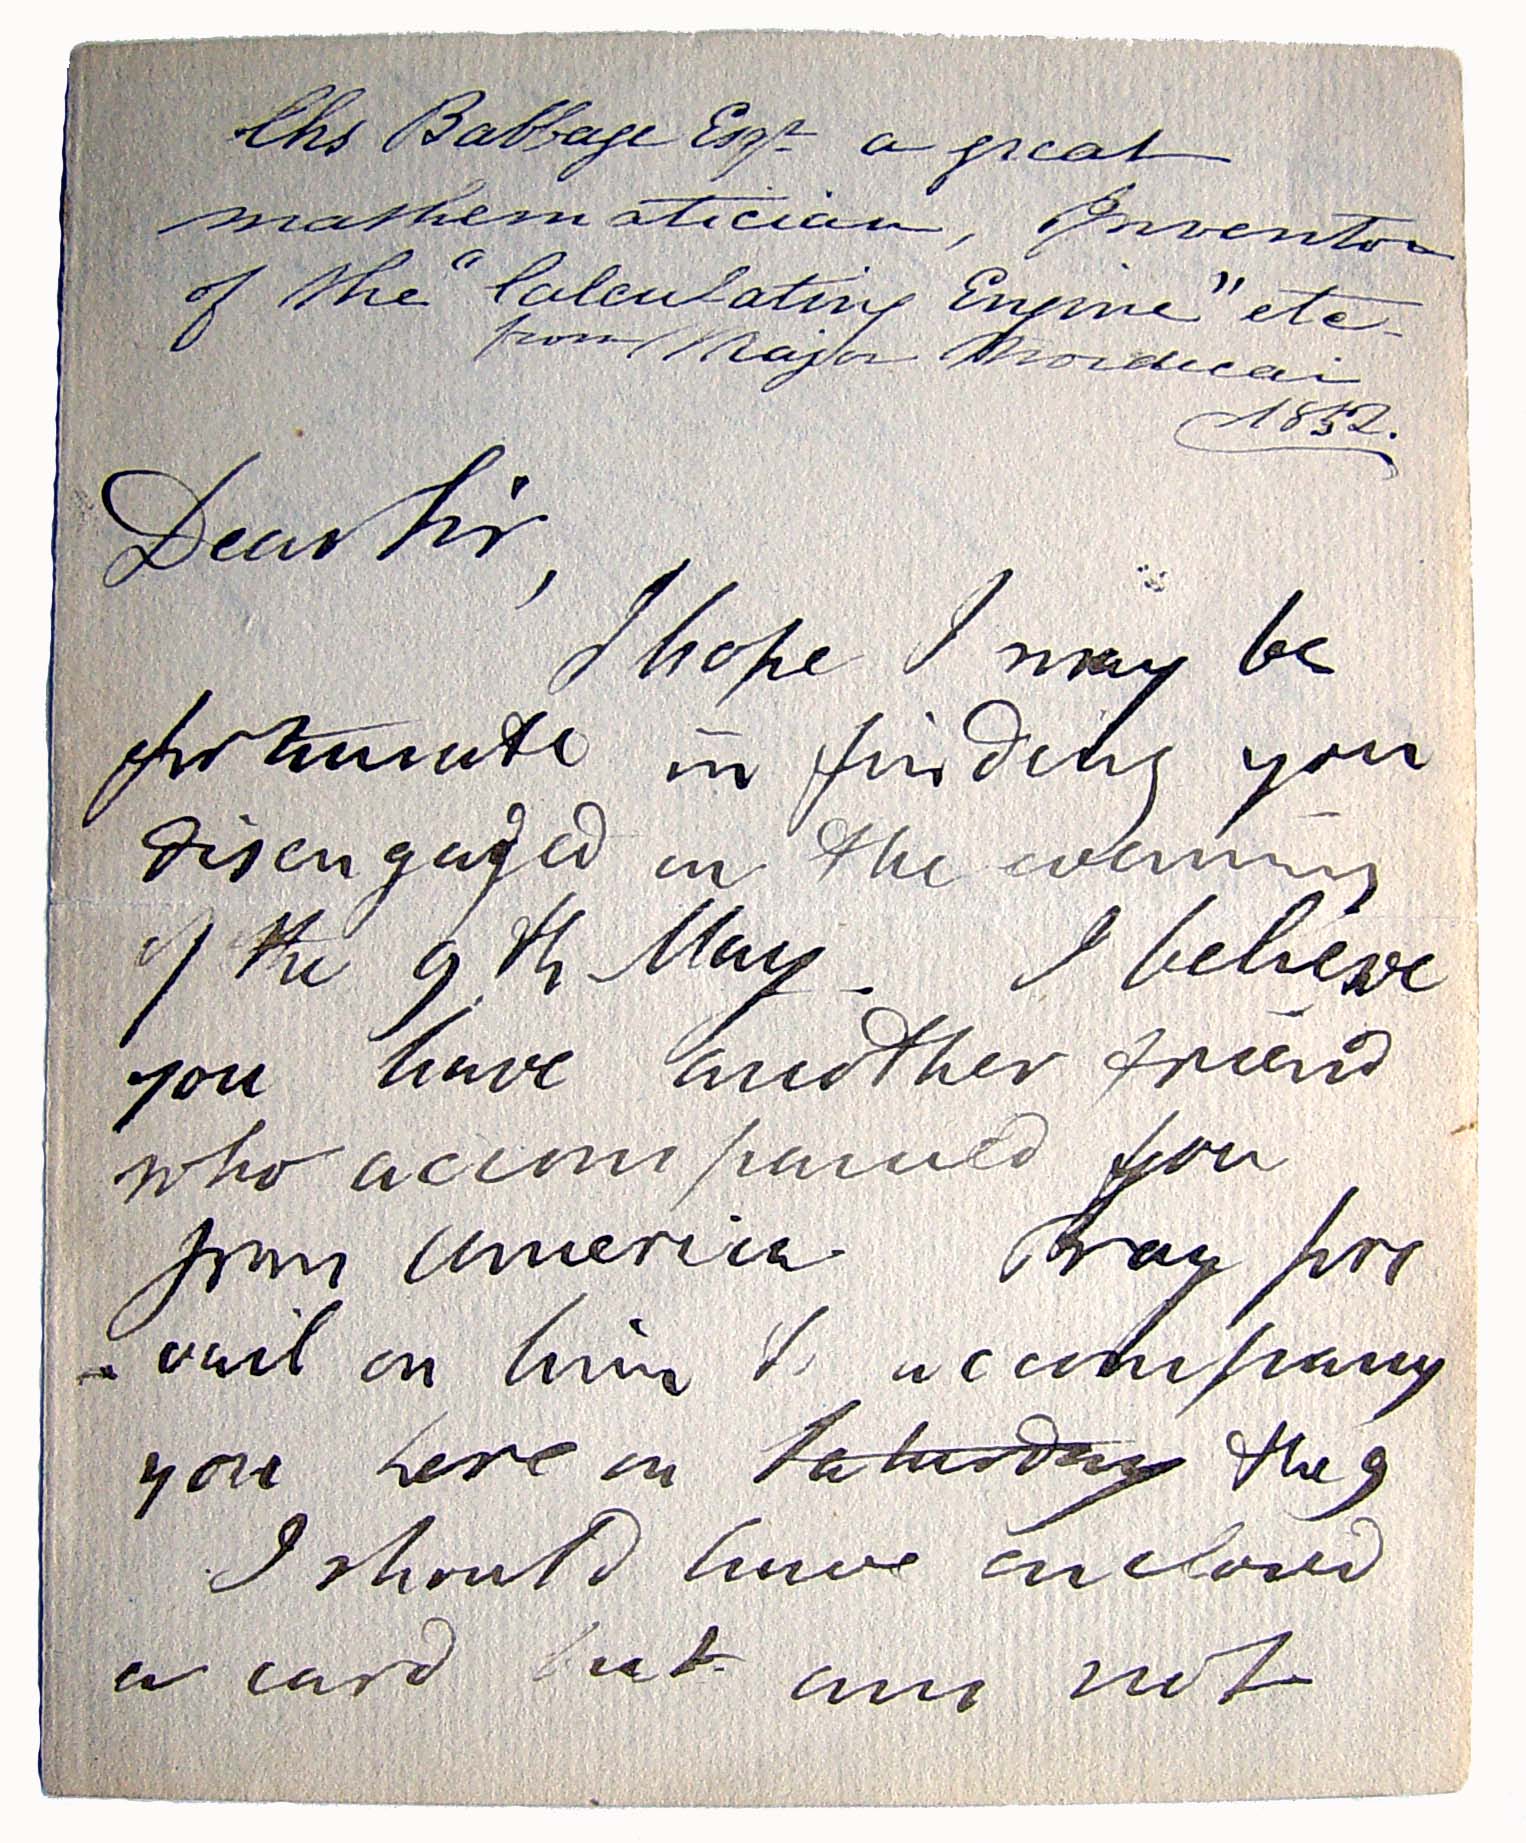 Chs Babbage Esqr a great
mathematician, Inventor
of the "Calculating Engine" etc
from Major Mordecai
1852.
Dear Sir,
I hope I may be
fortunate in finding you
disengaged on the evening
of the 9th May. I believe
you have another friend
who accompanied you
from America Pray pre
-vail on him to accompany
you here on Saturday the 9
I should have enclosed
a card but am not